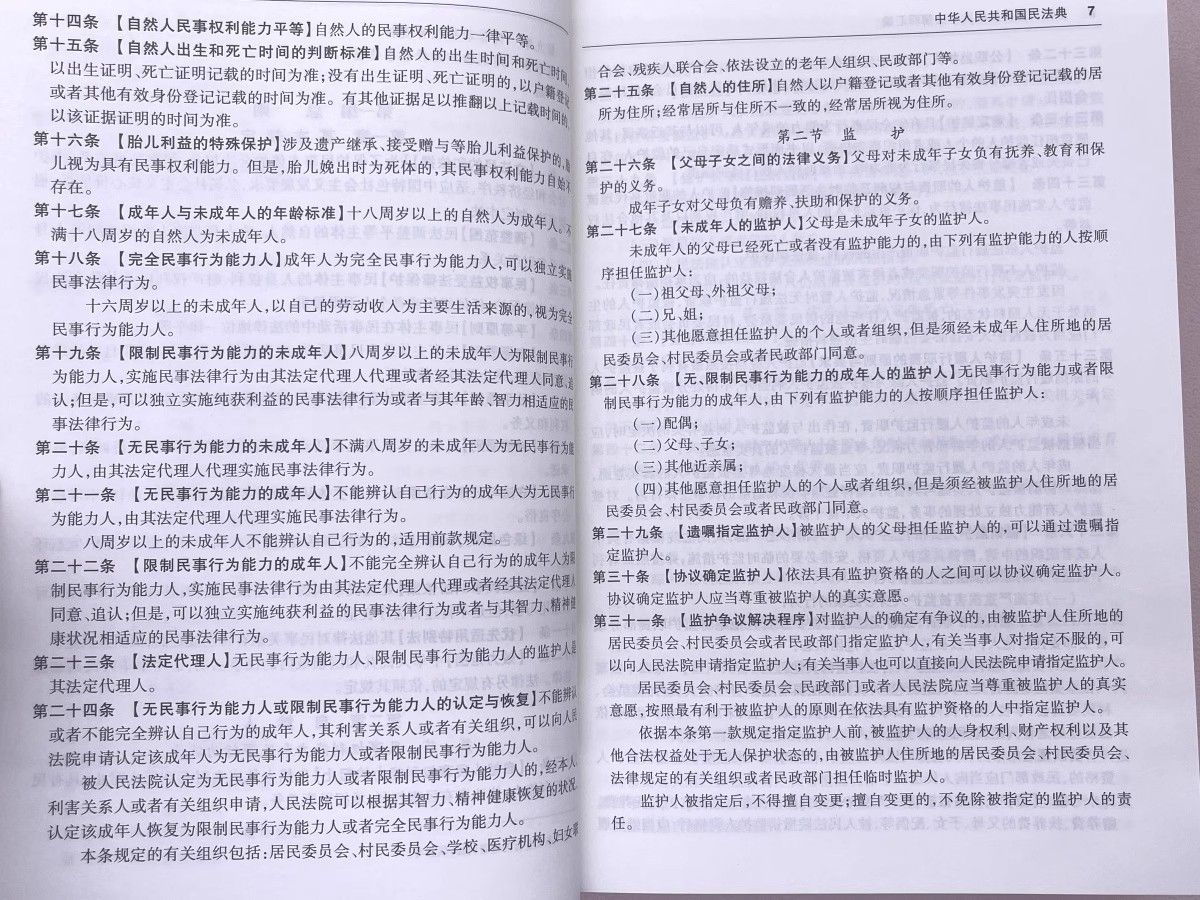 第十四条 【自然人民事权利能力平等】自然人的民事权利能力一律平等。
第十五条 【自然人出生和死亡时间的判断标准】自然人的出生时间和死亡时间,
以出生证明、死亡证明记载的时间为准;没有出生证明、死亡证明的,以户籍登记
或者其他有效身份登记记载的时间为准。有其他证据足以推翻以上记载时间的,
以该证据证明的时间为准。
第十六条 【胎儿利益的特殊保护】涉及遗产继承、接受赠与等胎儿利益保护的,胎
儿视为具有民事权利能力。但是,胎儿娩出时为死体的,其民事权利能力自始不
存在。
第十七条 【成年人与未成年人的年龄标准】十八周岁以上的自然人为成年人。不
满十八周岁的自然人为未成年人。
第十八条 【完全民事行为能力人】成年人为完全民事行为能力人,可以独立实施
民事法律行为。
十六周岁以上的未成年人,以自己的劳动收入为主要生活来源的,视为完全
民事行为能力人。
第十九条 【限制民事行为能力的未成年人】八周岁以上的未成年人为限制民事行
为能力人,实施民事法律行为由其法定代理人代理或者经其法定代理人同意、追
认;但是,可以独立实施纯获利益的民事法律行为或者与其年龄、智力相适应的民
事法律行为。
第二十条 【无民事行为能力的未成年人】不满八周岁的未成年人为无民事行为能
力人,由其法定代理人代理实施民事法律行为。
第二十一条 【无民事行为能力的成年人】不能辨认自己行为的成年人为无民事行
为能力人,由其法定代理人代理实施民事法律行为。
八周岁以上的未成年人不能辨认自己行为的,适用前款规定。
第二十二条 【限制民事行为能力的成年人】不能完全辨认自己行为的成年人为限
制民事行为能力人,实施民事法律行为由其法定代理人代理或者经其法定代理人
同意、追认;但是,可以独立实施纯获利益的民事法律行为或者与其智力、精神健
康状况相适应的民事法律行为。
第二十三条 【法定代理人】无民事行为能力人、限制民事行为能力人的监护人是
其法定代理人。
第二十四条 【无民事行为能力人或限制民事行为能力人的认定与恢复】不能辨认
或者不能完全辨认自己行为的成年人,其利害关系人或者有关组织,可以向人民
法院申请认定该成年人为无民事行为能力人或者限制民事行为能力人。
被人民法院认定为无民事行为能力人或者限制民事行为能力人的,经本人、
利害关系人或者有关组织申请,人民法院可以根据其智力、精神健康恢复的状况,
认定该成年人恢复为限制民事行为能力人或者完全民事行为能力人。
本条规定的有关组织包括:居民委员会、村民委员会、学校、医疗机构、妇女
中华人民共和国民法典 7
合会、残疾人联合会、依法设立的老年人组织、民政部门等。
第二十五条 【自然人的住所】自然人以户籍登记或者其他有效身份登记记载的居
所为住所;经常居所与住所不一致的,经常居所视为住所。
第二节 监 护
第二十六条 【父母子女之间的法律义务】父母对未成年子女负有抚养、教育和保
护的义务。
成年子女对父母负有赡养、扶助和保护的义务。
第二十七条 【未成年人的监护人】父母是未成年子女的监护人。
未成年人的父母已经死亡或者没有监护能力的,由下列有监护能力的人按顺
序担任监护人:
(一)祖父母、外祖父母;
(二)兄、姐;
(三)其他愿意担任监护人的个人或者组织,但是须经未成年人住所地的居
民委员会、村民委员会或者民政部门同意。
第二十八条 【无、限制民事行为能力的成年人的监护人】无民事行为能力或者限
制民事行为能力的成年人,由下列有监护能力的人按顺序担任监护人:
(一)配偶;
(二)父母、子女;
(三)其他近亲属;
(四)其他愿意担任监护人的个人或者组织,但是须经被监护人住所地的居
民委员会、村民委员会或者民政部门同意。
第二十九条 【遗嘱指定监护人】被监护人的父母担任监护人的,可以通过遗嘱指
定监护人。
第三十条 【协议确定监护人】依法具有监护资格的人之间可以协议确定监护人。
协议确定监护人应当尊重被监护人的真实意愿。
第三十一条 【监护争议解决程序】对监护人的确定有争议的,由被监护人住所地的
居民委员会、村民委员会或者民政部门指定监护人,有关当事人对指定不服的,可
以向人民法院申请指定监护人;有关当事人也可以直接向人民法院申请指定监护人。
居民委员会、村民委员会、民政部门或者人民法院应当尊重被监护人的真实
意愿,按照最有利于被监护人的原则在依法具有监护资格的人中指定监护人。
依据本条第一款规定指定监护人前,被监护人的人身权利、财产权利以及其
他合法权益处于无人保护状态的,由被监护人住所地的居民委员会、村民委员会、
法律规定的有关组织或者民政部门担任临时监护人。
监护人被指定后,不得擅自变更;擅自变更的,不免除被指定的监护人的责
任。